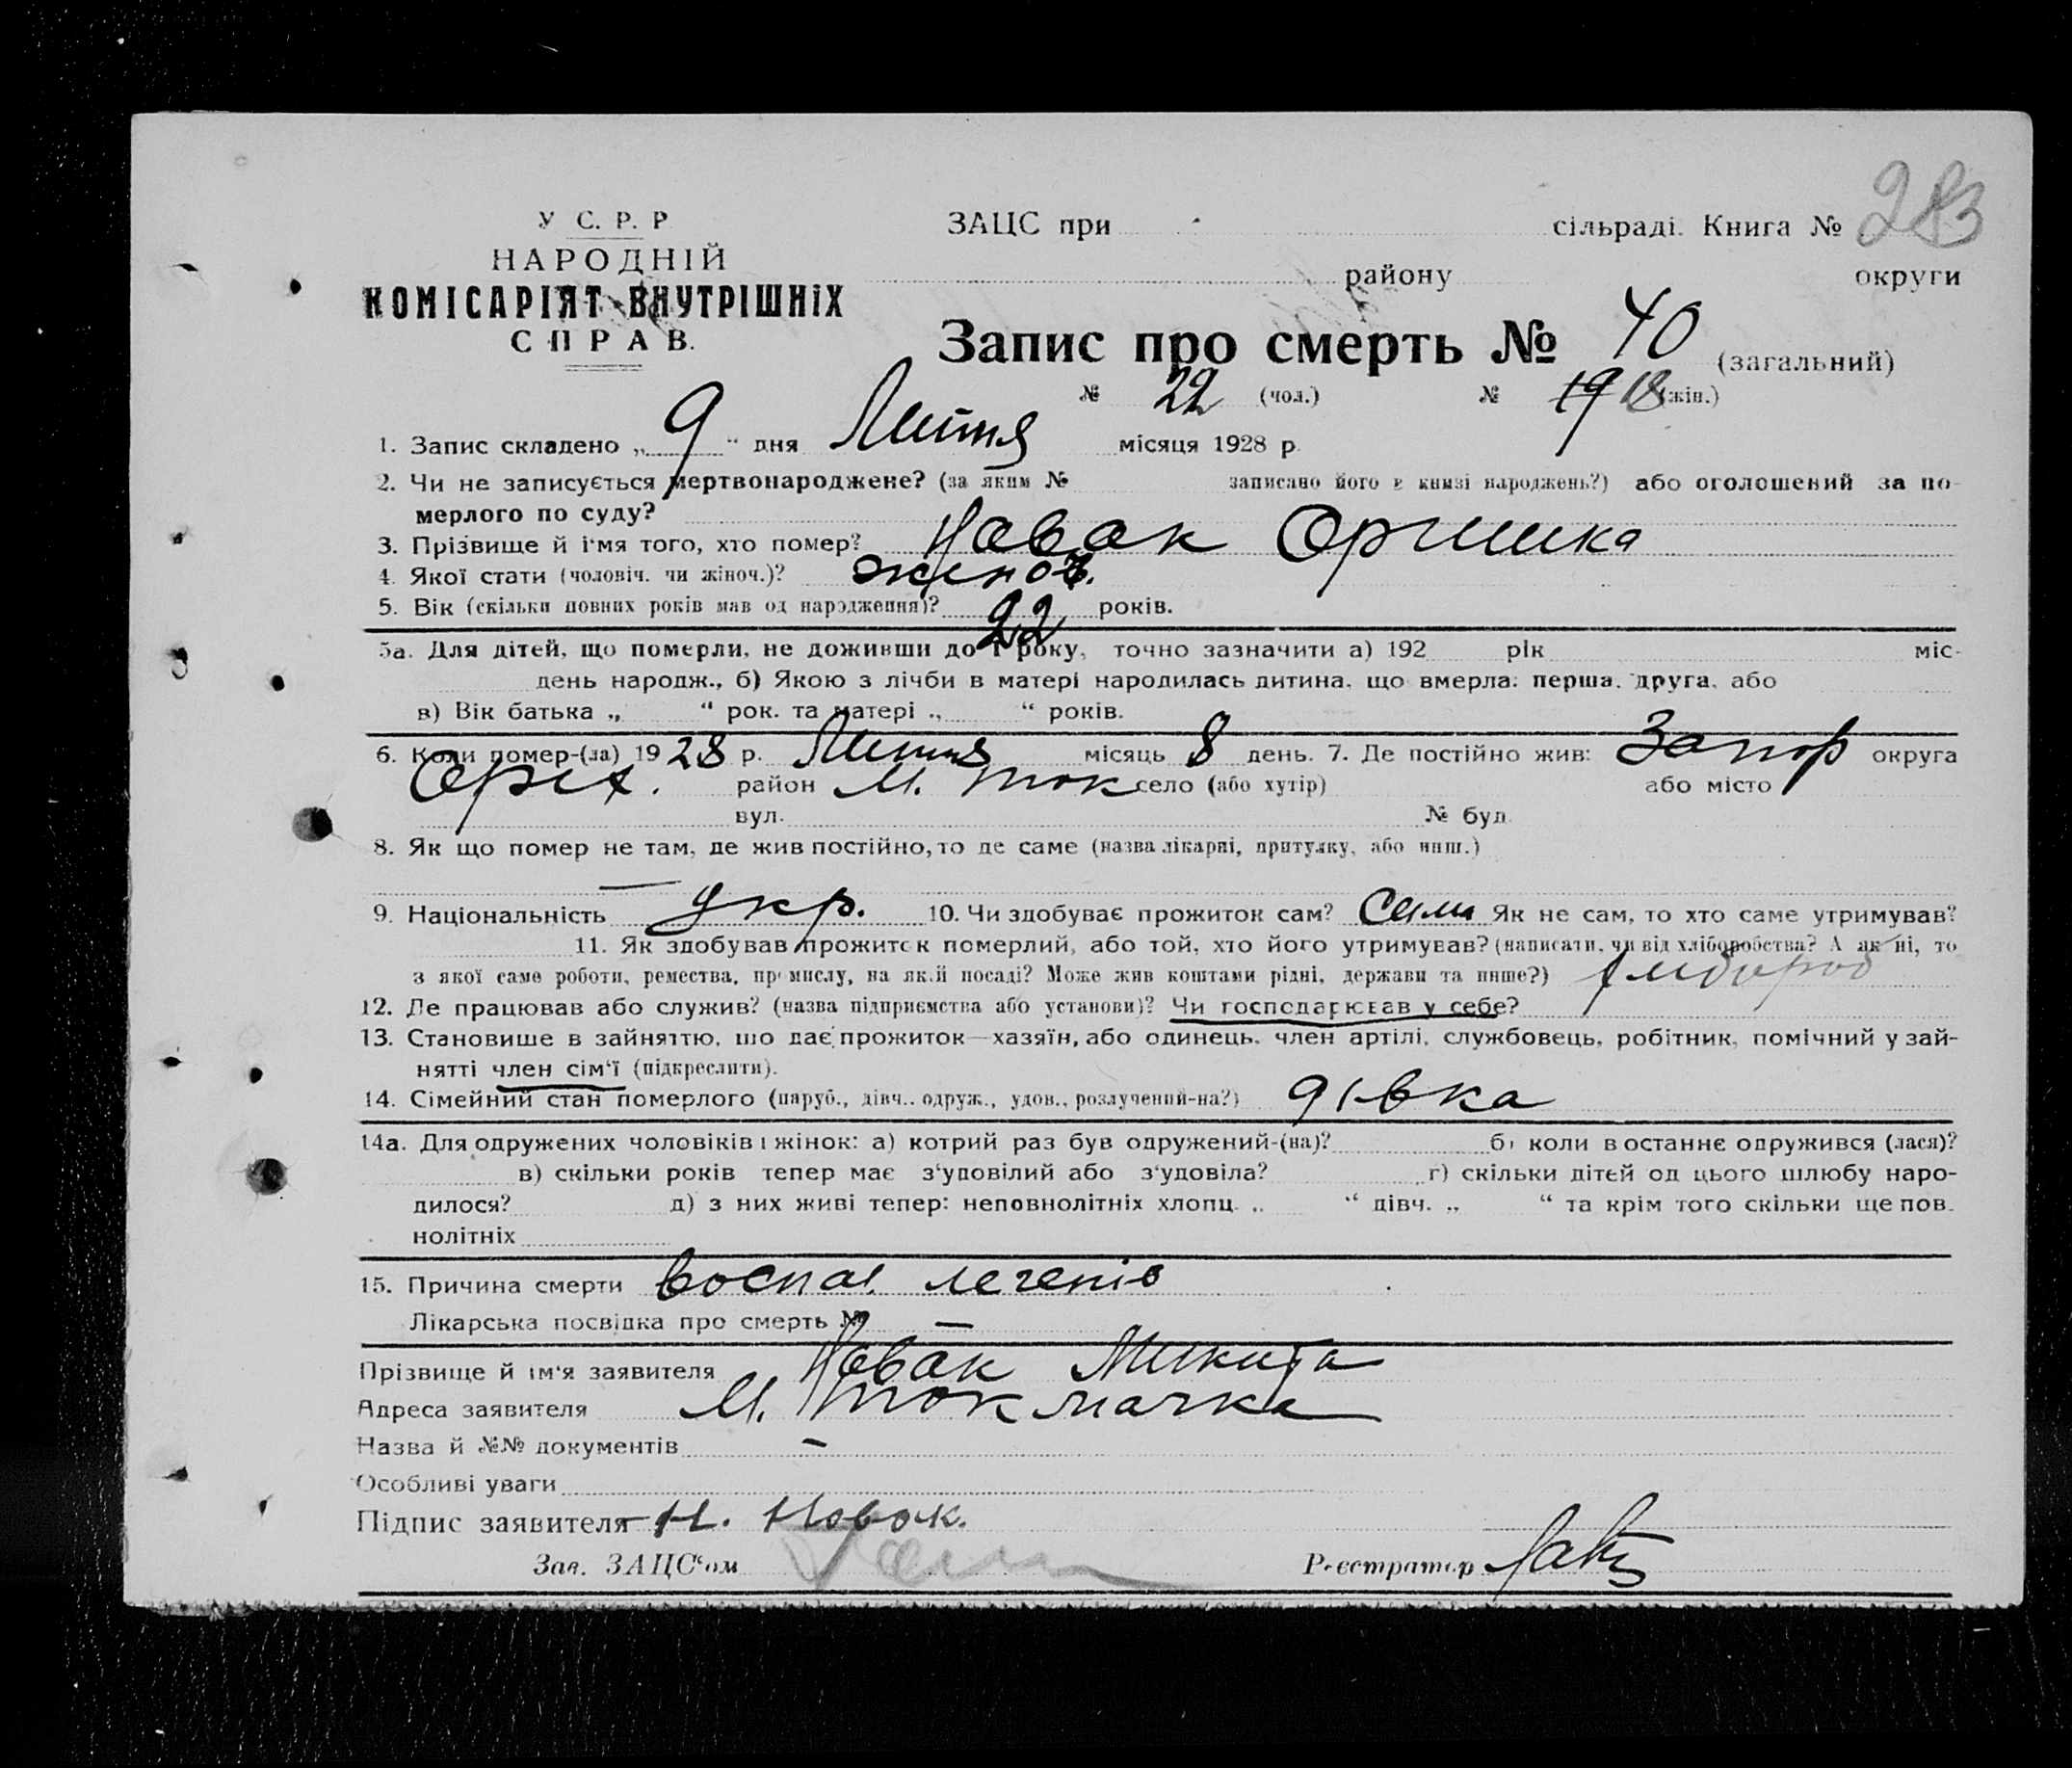 У С. Р. Р
НАРОДНІЙ
КОМІСАРІЯТ ВНУТРІШНІХ
СПРАВ.
ЗАЦС при сільраді. Книга № 283
району округи
Запис про смерть № 40 (загальний)
№ 22 (чол.) № 19 18 (жін.)
1. Запис складено „ 9 “ дня Липня місяця 1928 р.
2. Чи не записується мертвонароджене? (за яким № записано його в книзі народжень?) або оголошений за по-
мерлого по суду?
3. Прізвище й ім'я того, хто помер? Новак Оришка
4. Якої стати (чоловіч. чи жіноч.)? жіноч.
5. Вік (скільки повних років мав од народження)? 22 років.
5а. Для дітей, що померли, не доживши до 1 року, точно зазначити а) 192 рік міс-
день народж., б) Якою з лічби в матері народилась дитина, що вмерла: перша, друга, або
в) Вік батька „ “ рок. та матері „ “ років.
6. Коли помер-(ла) 1928 р. Липня місяць 8 день. 7. Де постійно жив: Запор округа
Оріх. район М. Ток село (або хутір) або місто
вул. № буд.
8. Як що помер не там, де жив постійно, то де саме (назва лікарні, притулку, або инш.)
—
9. Національність укр. 10. Чи здобуває прожиток сам? Сама Як не сам, то хто саме утримував?
11. Як здобував прожиток померлий, або той, хто його утримував? (написати, чи від хліборобства? А як ні, то
з якої саме роботи, ремества, промислу, на якій посаді? Може жив коштами рідні, держави та инше?)
12. Де працював або служив? (назва підприємства або установи)? Чи господарював у себе?
13. Становише в зайняттю, що дає прожиток—хазяїн, або одинець, член артілі, службовець, робітник, помічний у зай-
нятті член сім'ї (підкреслити).
14. Сімейний стан померлого (паруб., дівч., одруж., удов., розлучений-на?) дівка
14а. Для одружених чоловіків і жінок: а) котрий раз був одружений-(на)? б) коли востаннє одружився (лася)?
в) скільки років тепер має з'удовілий або з'удовіла? г) скільки дітей од цього шлюбу наро-
дилося? д) з них живі тепер: неповнолітніх хлопц. „ “ дівч. „ “ та крім того скільки ще пов.
нолітніх
15. Причина смерти воспал. легенів
Лікарська посвідка про смерть № —
Прізвище й ім'я заявителя Новак Микита
Адреса заявителя М. Токмачка
Назва й №№ документів —
Особливі уваги
Підпис заявителя Н. Новак.
Зав. ЗАЦС'ом Реєстратор